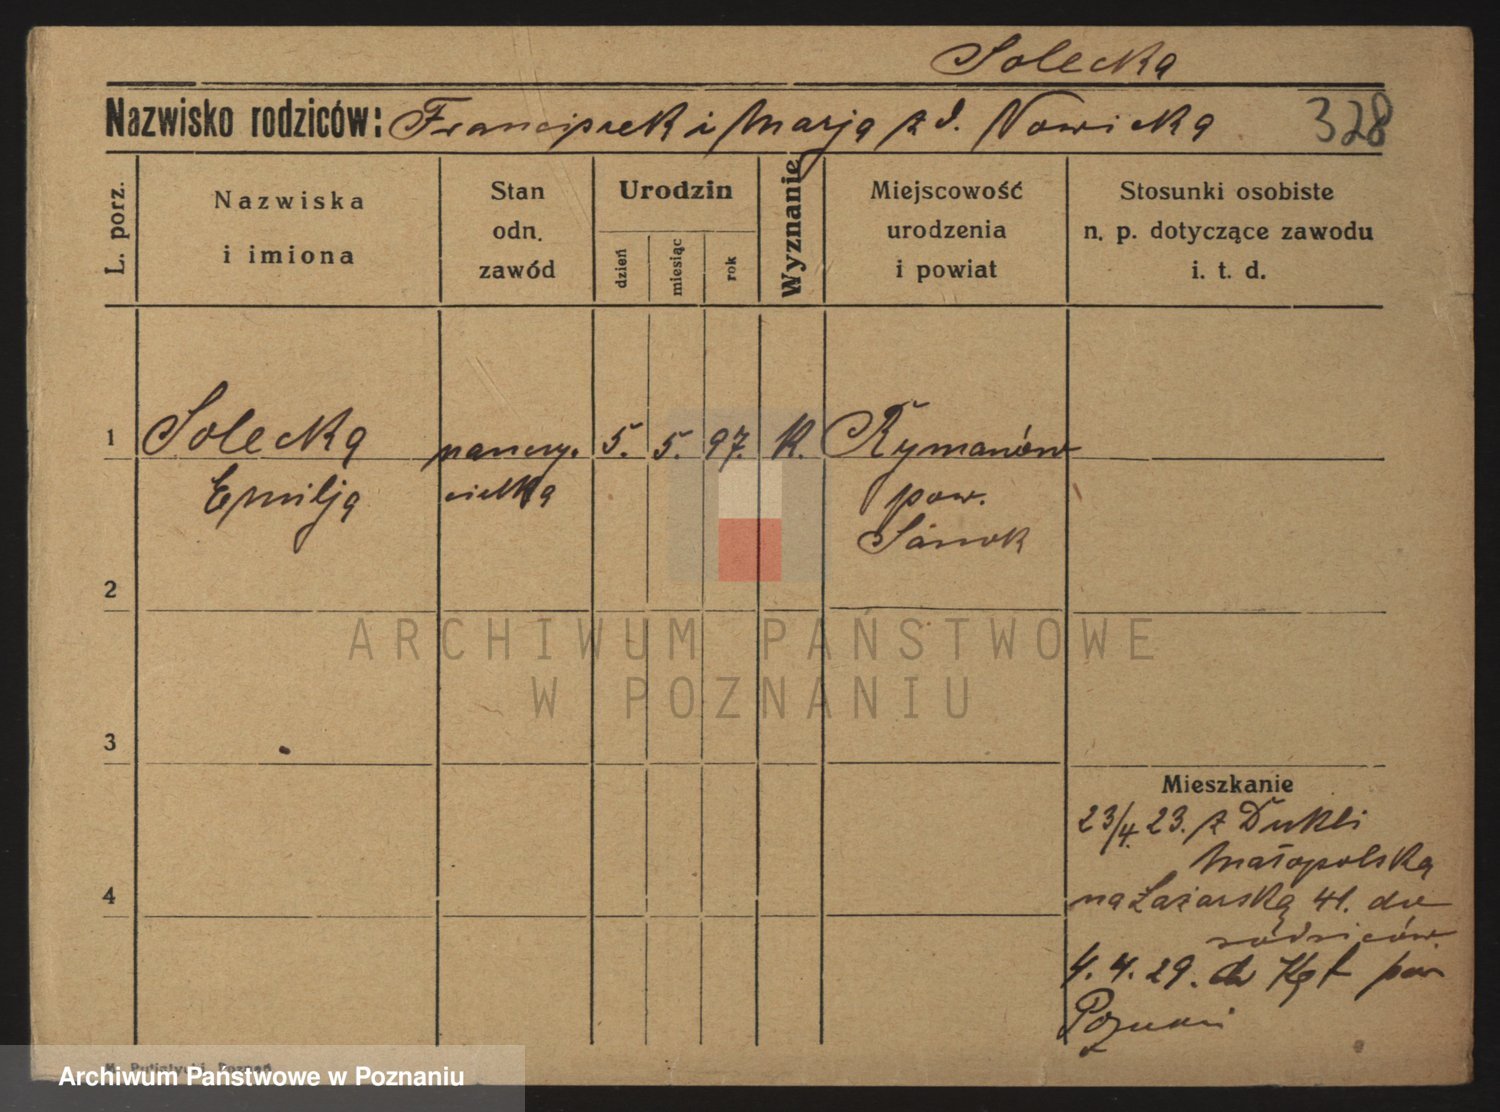 Solecka
Nazwisko rodziców: Franciszek i Marja z d. Nowicka 328
L. porz.
Nazwiska
i imiona
Stan
odn.
zawód
Urodzin
dzień
miesiąc
rok
Wyznanie
Miejscowość
urodzenia
i powiat
Stosunki osobiste
n. p. dotyczące zawodu
i. t. d.
1 Solecka nauczy- 5. 5. 97. K. Rymanów
Emilja cielka pow.
Sanok
2
ARCHIWUM PAŃSTWOWE
W POZNANIU
3
Mieszkanie
23/4. 23. z Dukli
Małopolska
4 na Łazarska 41. do
rodziców.
4. 4. 29. do pow
Poznań
Poznań
Archiwum Państwowe w Poznaniu